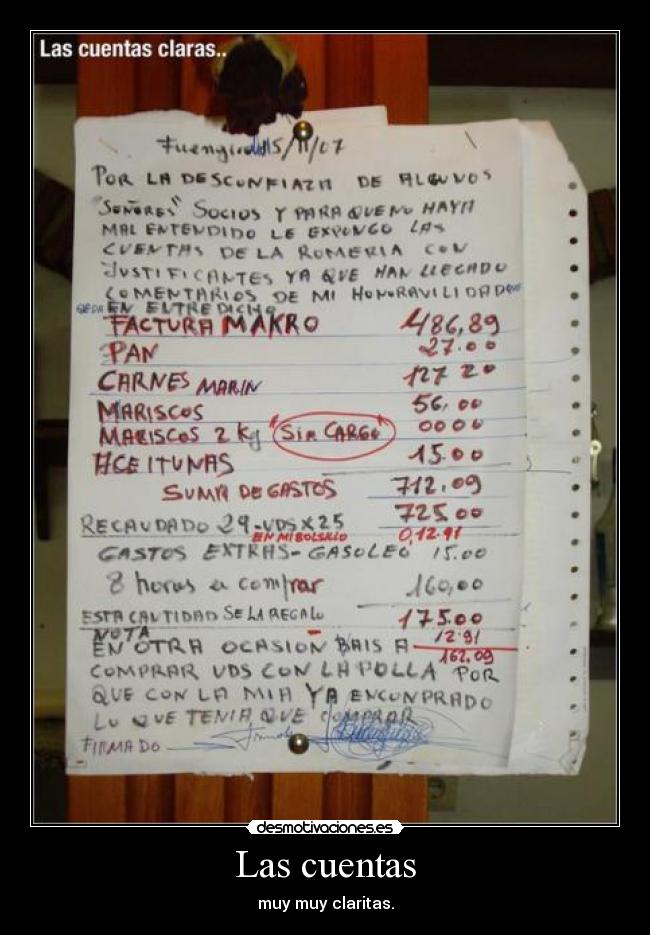 Las cuentas claras..
Fuengirola 15/11/07
POR LA DESCONFIAZA DE ALGUNOS
"SEÑORES" SOCIOS Y PARA QUE NO HAYA
MAL ENTENDIDO LE EXPONGO LAS
CUENTAS DE LA ROMERIA CON
JUSTIFICANTES YA QUE HAN LLEGADO
COMENTARIOS DE MI HONORAVILIDAD QUE
QEDA EN ENTREDICHO
FACTURA MAKRO 486,89
PAN 27.00
CARNES MARIN 127 20
MARISCOS 56,00
MARISCOS 2 Kg (SIN CARGO) 0000
ACEITUNAS 15.00
SUMA DE GASTOS 712,09
RECAUDADO 29-VDS X 25 725 00
EN MI BOLSILLO 0,12.91
GASTOS EXTRAS-GASOLEO 15.00
8 horas a comprar 160,00
ESTA CANTIDAD SE LA REGALO 175.00
NOTA 12.91
EN OTRA OCASION BAIS A 162.09
COMPRAR VDS CON LA POLLA POR
QUE CON LA MIA YA E NCONPRADO
LO QUE TENIA QUE COMPRAR
FIRMADO
desmotivaciones.es
Las cuentas
muy muy claritas.